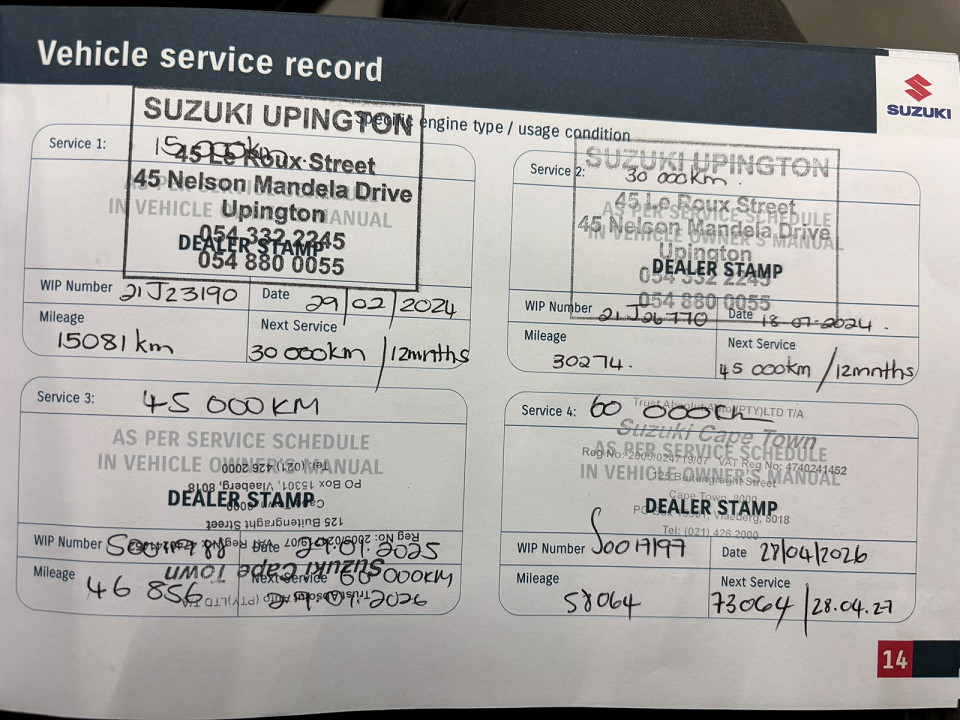 Vehicle service record
SUZUKI
Specific engine type / usage condition
Service 1: 15 000km
SUZUKI UPINGTON
45 Le Roux Street
45 Nelson Mandela Drive
Upington
054 332 2245
054 880 0055
AS PER SERVICE SCHEDULE
IN VEHICLE OWNER'S MANUAL
DEALER STAMP
WIP Number 21J23190 Date 29/02/2024
Mileage 15081 km
Next Service 30 000km / 12mnths
Service 2: 30 000km.
SUZUKI UPINGTON
45 Le Roux Street
45 Nelson Mandela Drive
Upington
054 332 2245
054 880 0055
AS PER SERVICE SCHEDULE
IN VEHICLE OWNER'S MANUAL
DEALER STAMP
WIP Number 21J26770 Date 18-07-2024.
Mileage 30274.
Next Service 45 000km / 12mnths
Service 3: 45 000KM
AS PER SERVICE SCHEDULE
IN VEHICLE OWNER'S MANUAL
DEALER STAMP
Trust Absolut Auto (PTY)LTD T/A
Suzuki Cape Town
125 Buitengraght Street
Cape Town, 8000
PO Box 15301, Vlaeberg, 8018
Tel: (021) 426 2000
WIP Number Date 29.01.2025
Mileage 46 856
Next Service 60 000KM
2026
Service 4: 60 000
Trust Absolut Auto (PTY)LTD T/A
Suzuki Cape Town
Reg No: 2009/024719/07 VAT Reg No: 4740241452
125 Buitengraght Street
Cape Town, 8000
PO Box 15301, Vlaeberg, 8018
Tel: (021) 426 2000
AS PER SERVICE SCHEDULE
IN VEHICLE OWNER'S MANUAL
DEALER STAMP
WIP Number S0017197 Date 28/04/2026
Mileage 58064
Next Service 73064 / 28.04.27
14